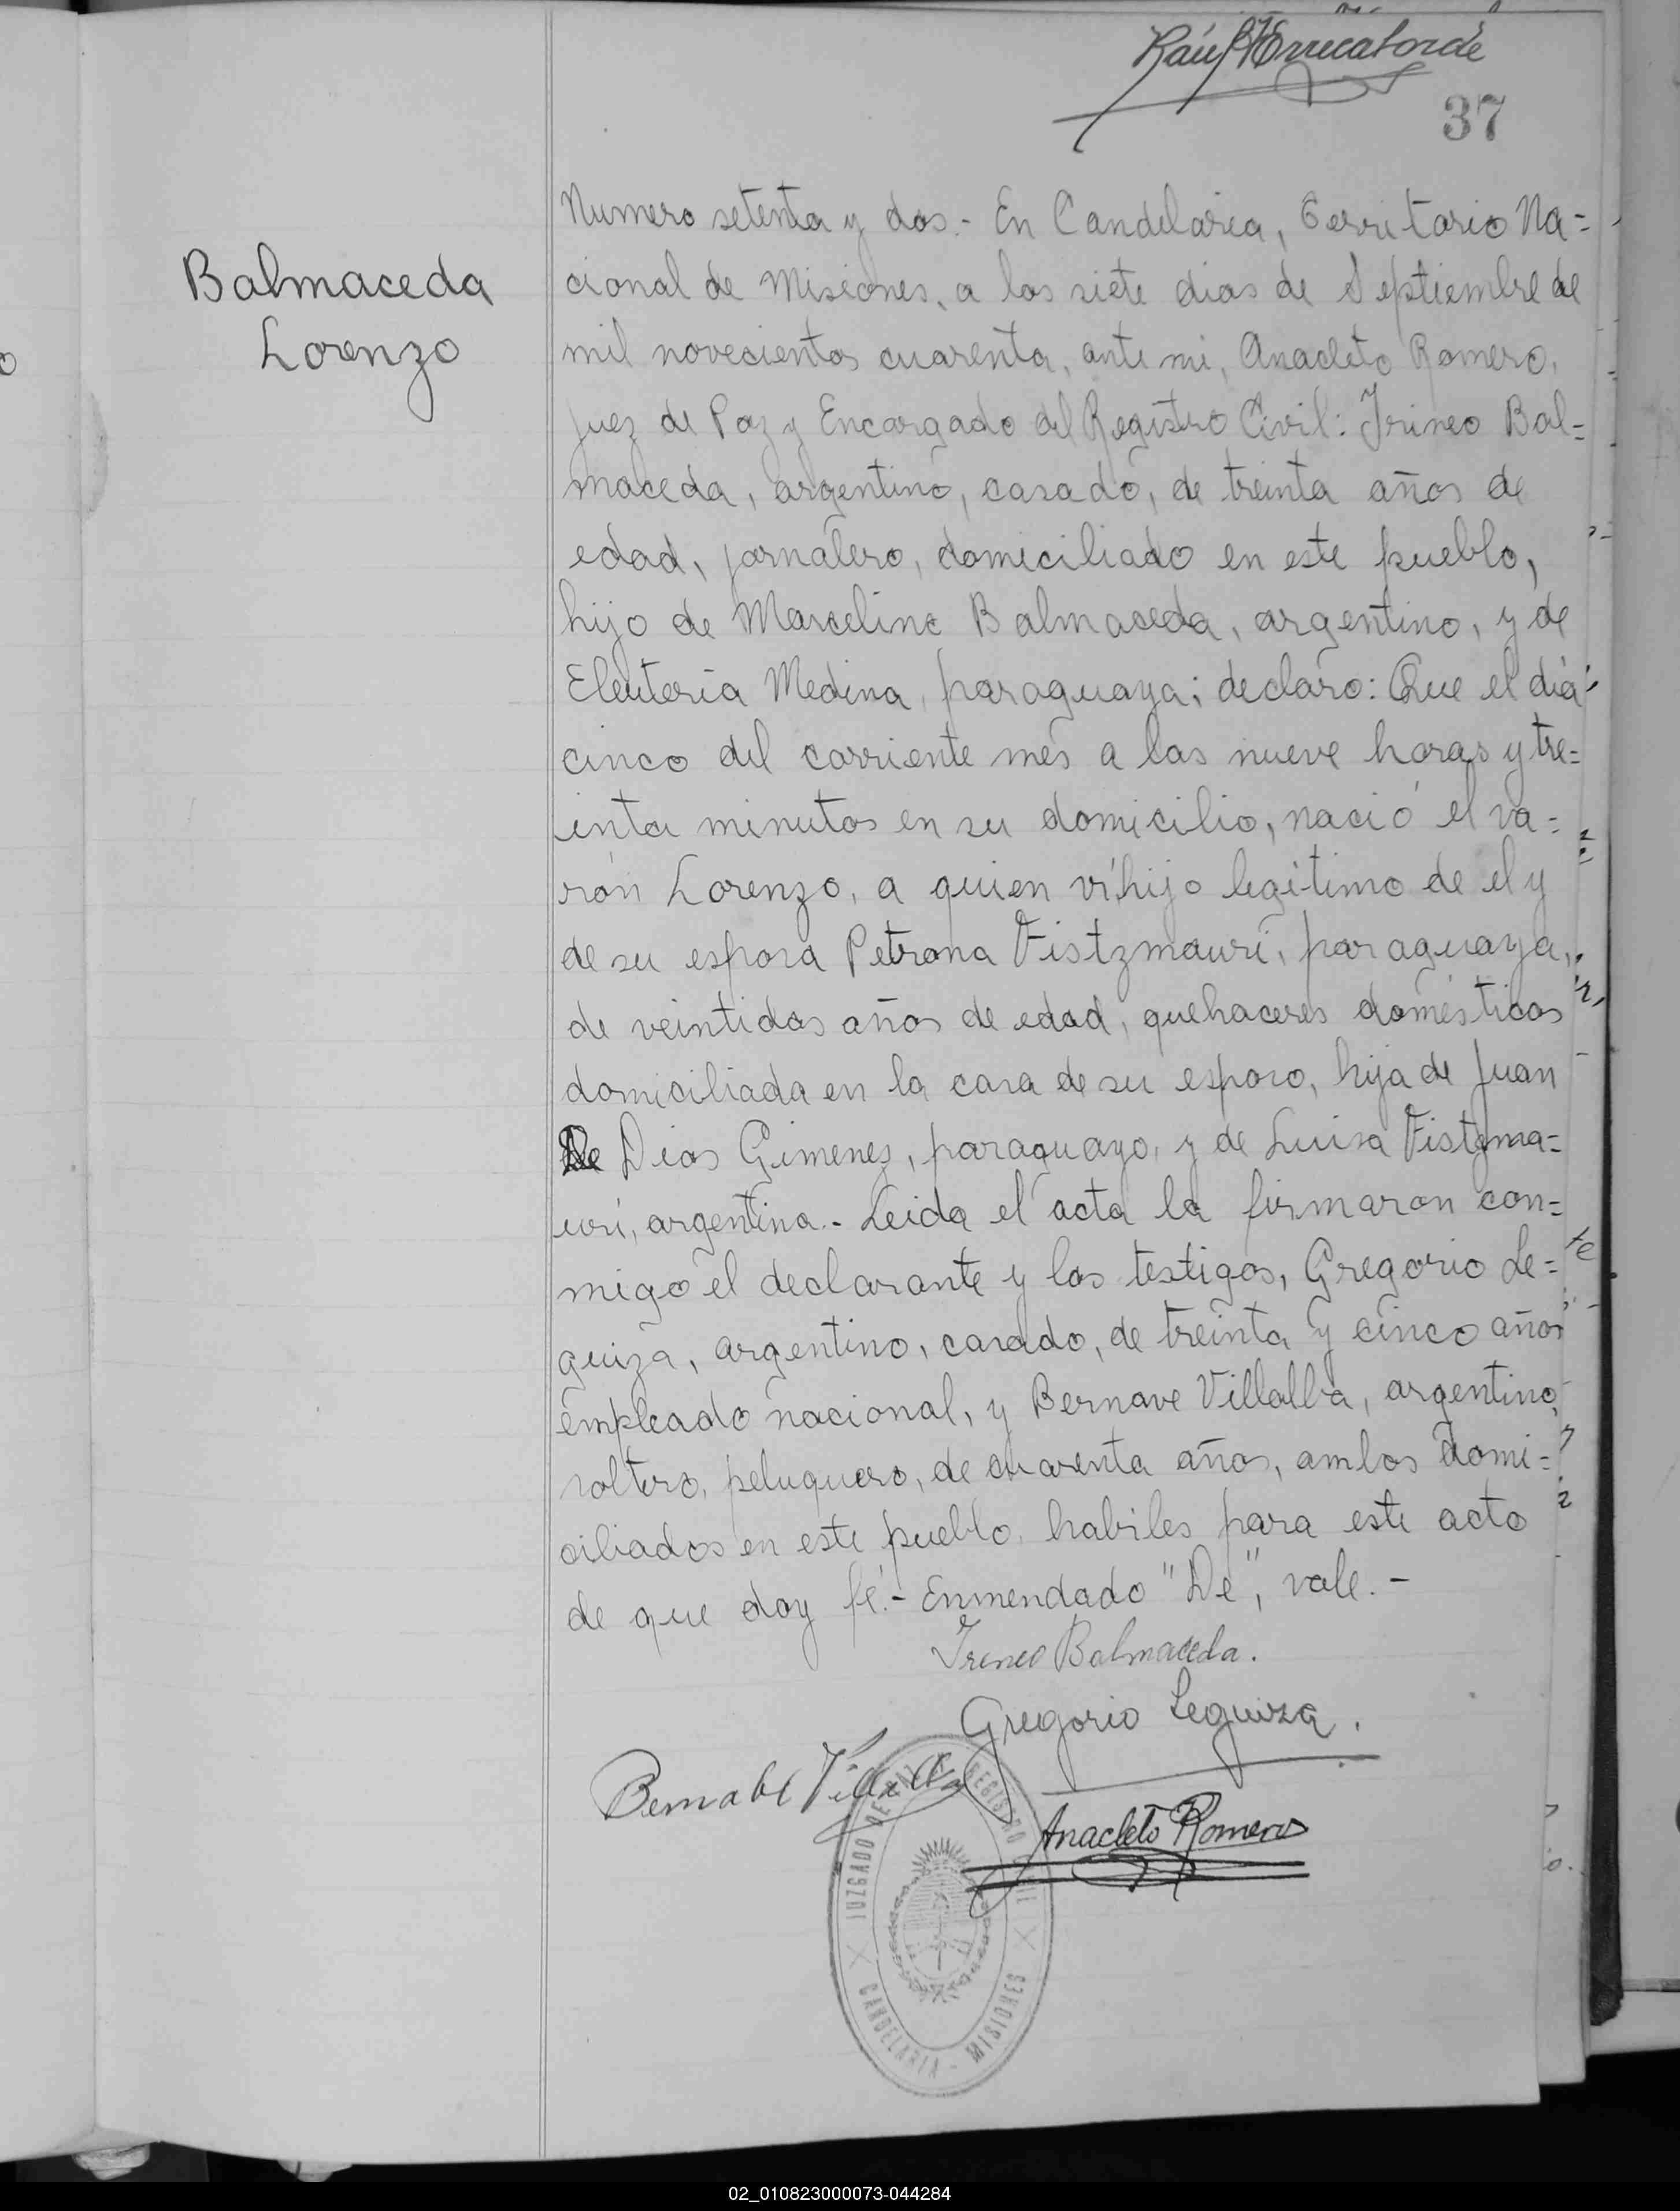 37
Balmaceda
Lorenzo
Numero setenta y dos.- En Candelaria, Territorio Na=
cional de Misiones, a los siete dias de Septiembre de
mil novecientos cuarenta, ante mi, Anacleto Romero,
Juez de Paz y Encargado del Registro Civil: Irineo Bal=
maceda, argentino, casado, de treinta años de
edad, jornalero, domiciliado en este pueblo,
hijo de Marcelino Balmaceda, argentino, y de
Eleuteria Medina, paraguaya; declaro: Que el dia
cinco del corriente mes a las nueve horas y tre=
inta minutos en su domicilio, nació el va=
rón Lorenzo, a quien ví hijo legitimo de el y
de su esposa Petrona Fistzmauri, paraguaya,
de veintidos años de edad, quehaceres domésticos
domiciliada en la casa de su esposo, hija de Juan
De Dios Gimenez, paraguayo, y de Luisa Fistzma=
uri, argentina.- Leida el acta la firmaron con=
migo el declarante y los testigos, Gregorio Le=
guiza, argentino, casado, de treinta y cinco años
empleado nacional, y Bernave Villalba, argentino,
soltero, peluquero, de cuarenta años, ambos domi=
ciliados en este pueblo, habiles para este acto
de que doy fé.- Enmendado "De", vale.-
Ireneo Balmaceda.
Gregorio Leguiza.
Bernabe Villalba
Anacleto Romero
JUZGADO DE PAZ Y REGISTRO CIVIL
CANDELARIA - MISIONES
02_010823000073-044284